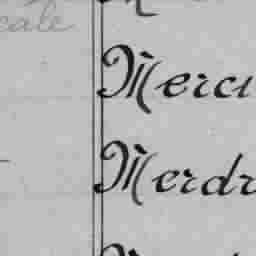 cale
Merci
Merdr